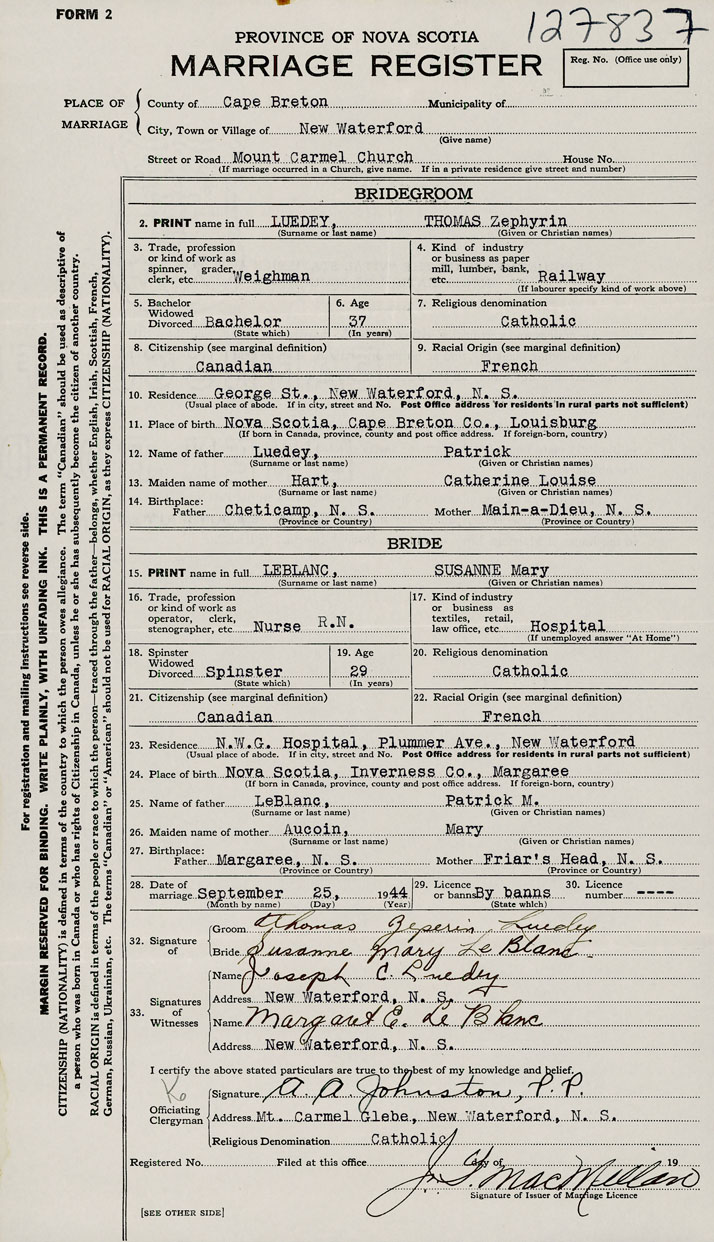 FORM 2
127837
PROVINCE OF NOVA SCOTIA
MARRIAGE REGISTER
Reg. No. (Office use only)
PLACE OF MARRIAGE
County of Cape Breton Municipality of
City, Town or Village of New Waterford
(Give name)
Street or Road Mount Carmel Church House No.
(If marriage occurred in a Church, give name. If in a private residence give street and number)
BRIDEGROOM
2. PRINT name in full LUEDEY, THOMAS Zephyrin
(Surname or last name) (Given or Christian names)
3. Trade, profession or kind of work as spinner, grader, clerk, etc. Weighman
4. Kind of industry or business as paper mill, lumber, bank, etc. Railway
(If labourer specify kind of work above)
5. Bachelor Widowed Divorced Bachelor
(State which)
6. Age 37
(In years)
7. Religious denomination
Catholic
8. Citizenship (see marginal definition)
Canadian
9. Racial Origin (see marginal definition)
French
10. Residence George St., New Waterford, N. S.
(Usual place of abode. If in city, street and No. Post Office address for residents in rural parts not sufficient)
11. Place of birth Nova Scotia, Cape Breton Co., Louisburg
(If born in Canada, province, county and post office address. If foreign-born, country)
12. Name of father Luedey, Patrick
(Surname or last name) (Given or Christian names)
13. Maiden name of mother Hart, Catherine Louise
(Surname or last name) (Given or Christian names)
14. Birthplace:
Father Cheticamp, N. S. Mother Main-a-Dieu, N. S.
(Province or Country) (Province or Country)
BRIDE
15. PRINT name in full LEBLANC, SUSANNE Mary
(Surname or last name) (Given or Christian names)
16. Trade, profession or kind of work as operator, clerk, stenographer, etc. Nurse R.N.
17. Kind of industry or business as textiles, retail, law office, etc. Hospital
(If unemployed answer "At Home")
18. Spinster Widowed Divorced Spinster
(State which)
19. Age 29
(In years)
20. Religious denomination
Catholic
21. Citizenship (see marginal definition)
Canadian
22. Racial Origin (see marginal definition)
French
23. Residence N.W.G. Hospital, Plummer Ave., New Waterford
(Usual place of abode. If in city, street and No. Post Office address for residents in rural parts not sufficient)
24. Place of birth Nova Scotia, Inverness Co., Margaree
(If born in Canada, province, county and post office address. If foreign-born, country)
25. Name of father LeBlanc, Patrick M.
(Surname or last name) (Given or Christian names)
26. Maiden name of mother Aucoin, Mary
(Surname or last name) (Given or Christian names)
27. Birthplace:
Father Margaree, N. S. Mother Friar's Head, N. S.
(Province or Country) (Province or Country)
28. Date of marriage September 25, 1944
(Month by name) (Day) (Year)
29. Licence or banns By banns
(State which)
30. Licence number ----
32. Signature of
Groom Thomas Zeperin Luedey
Bride Susanne Mary Le Blanc
33. Signatures of Witnesses
Name Joseph C. Luedey
Address New Waterford, N. S.
Name Margaret E. Le Blanc
Address New Waterford, N. S.
I certify the above stated particulars are true to the best of my knowledge and belief.
Officiating Clergyman
Signature A. A. Johnston, P. P.
Address Mt. Carmel Glebe, New Waterford, N. S.
Religious Denomination Catholic
Registered No. Filed at this office day of 19
MacMillan
Signature of Issuer of Marriage Licence
[SEE OTHER SIDE]
For registration and mailing instructions see reverse side.
MARGIN RESERVED FOR BINDING. WRITE PLAINLY, WITH UNFADING INK. THIS IS A PERMANENT RECORD.
CITIZENSHIP (NATIONALITY) is defined in terms of the country to which the person owes allegiance. The term "Canadian" should be used as descriptive of
a person who was born in Canada or who has rights of Citizenship in Canada, unless he or she has subsequently become the citizen of another country.
RACIAL ORIGIN is defined in terms of the people or race to which the person—traced through the father—belongs, whether English, Irish, Scottish, French,
German, Russian, Ukrainian, etc. The terms "Canadian" or "American" should not be used for RACIAL ORIGIN, as they express CITIZENSHIP (NATIONALITY).